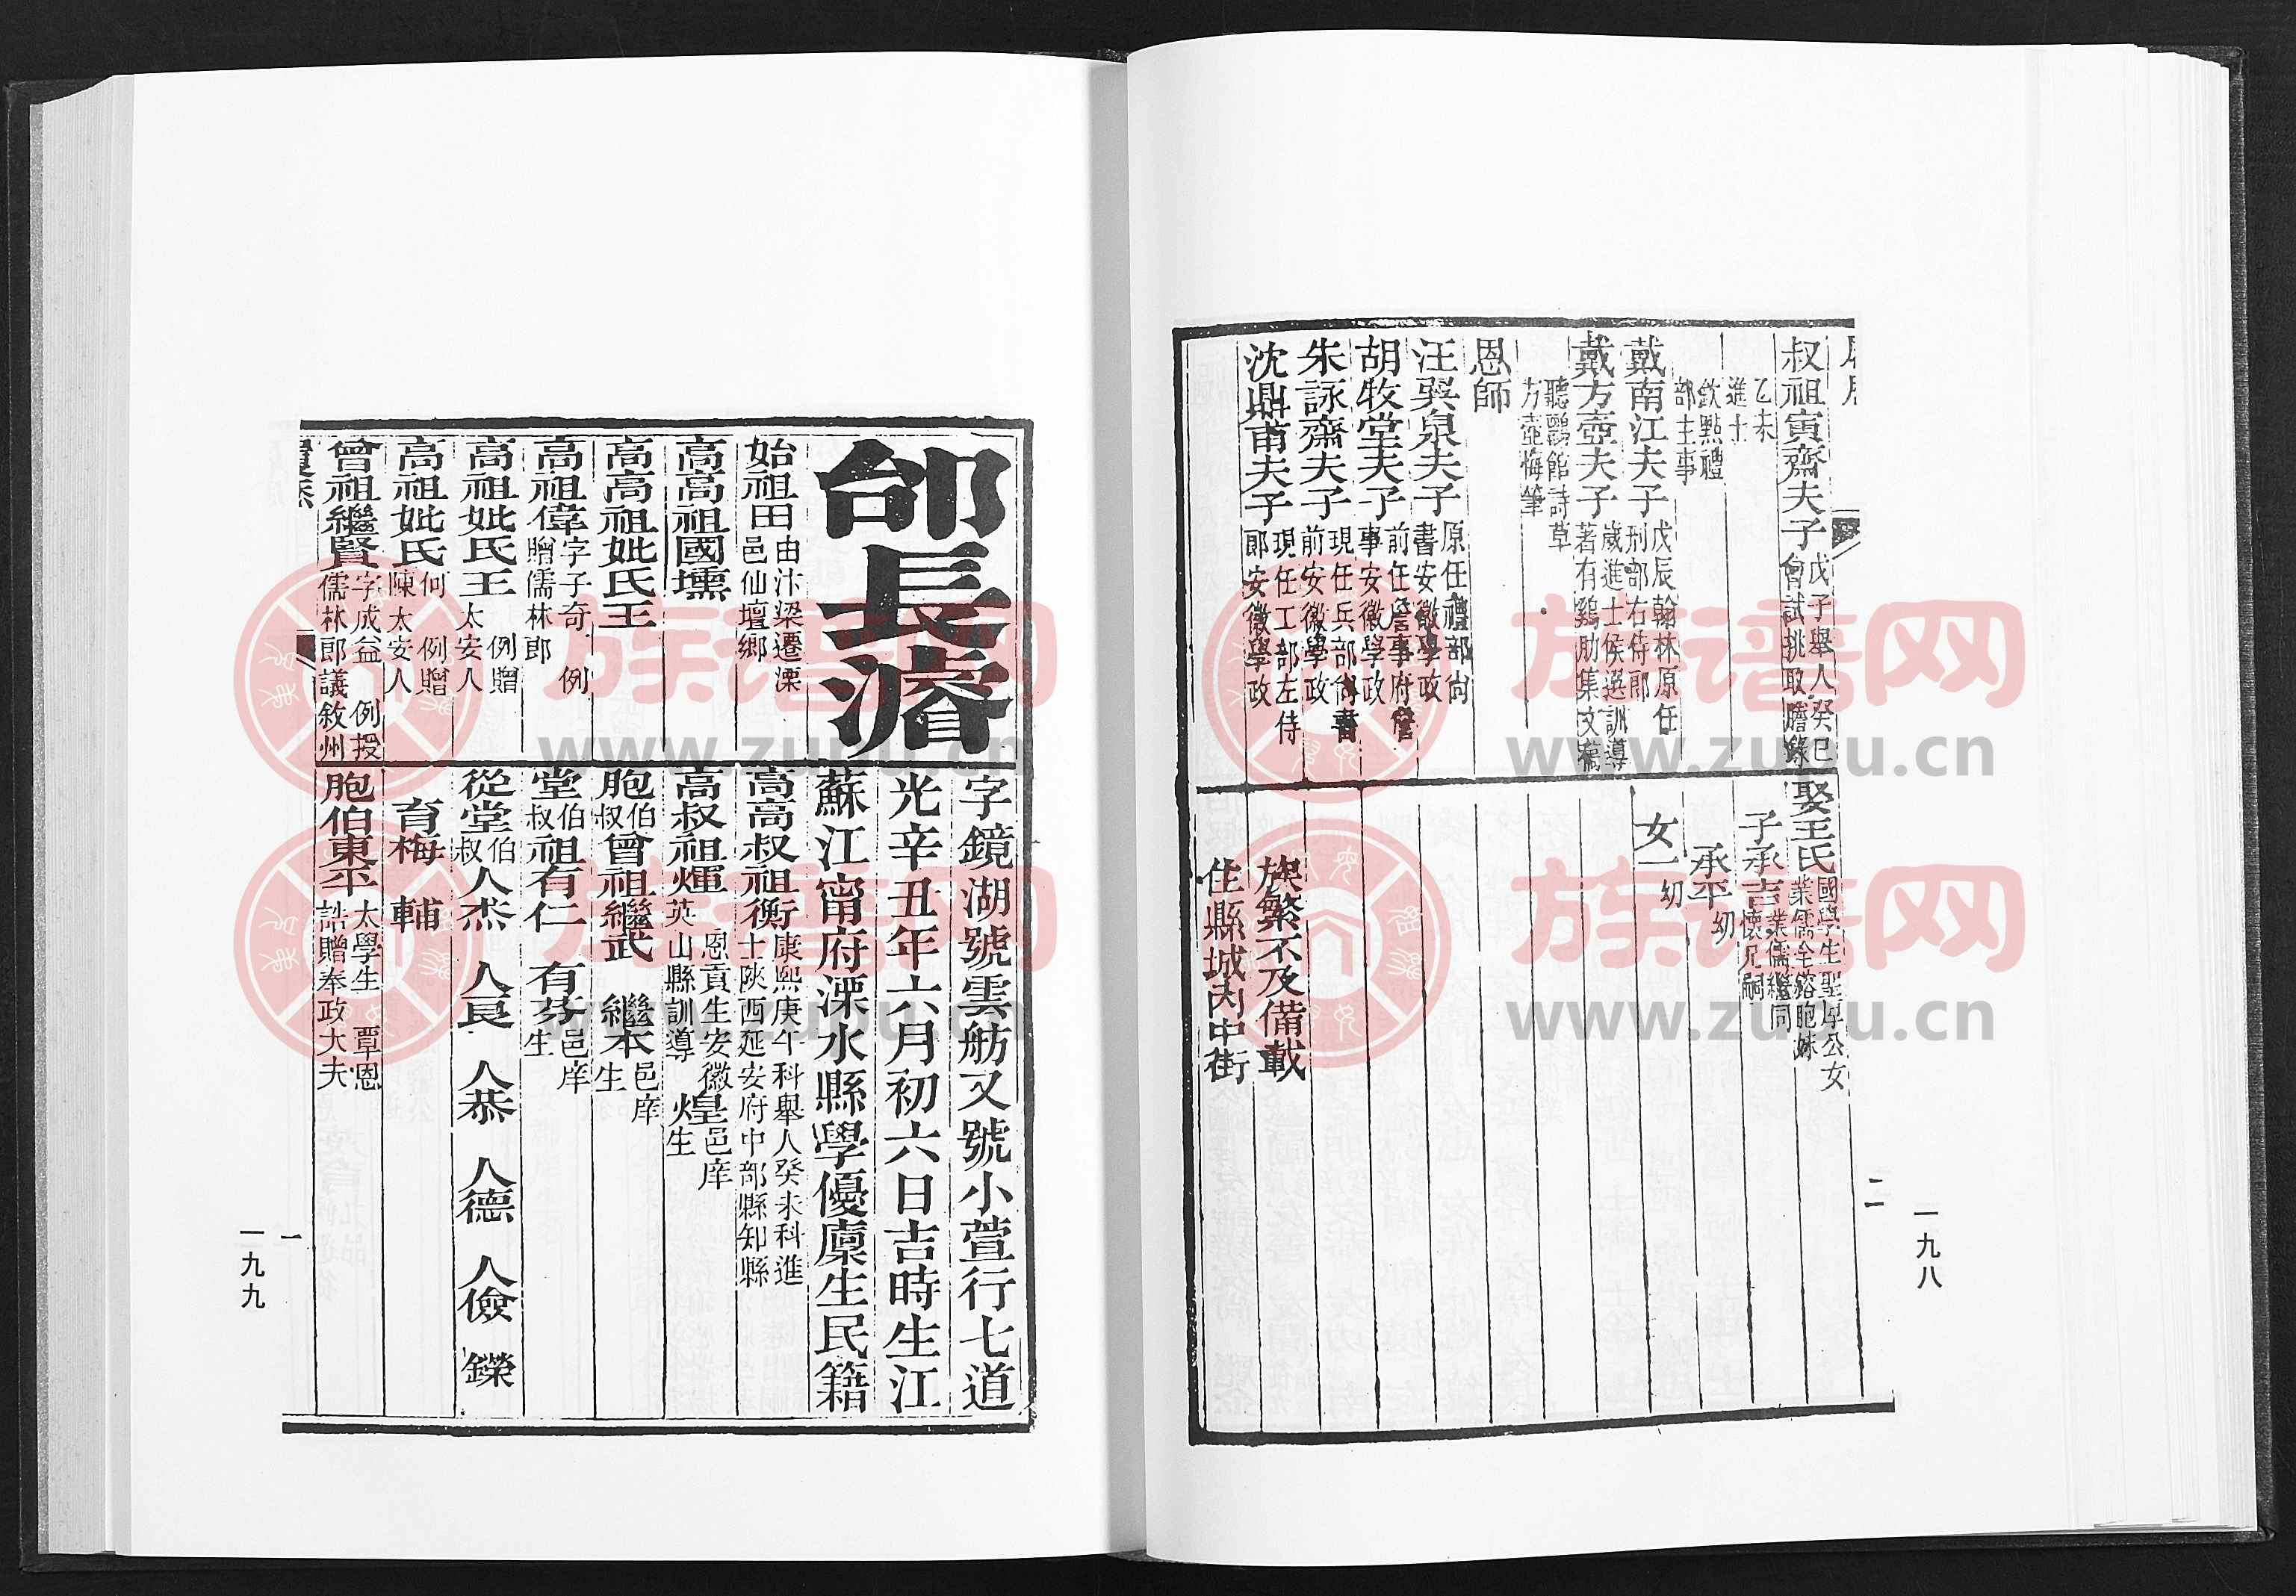 叔祖寅齋夫子戊子舉人癸巳會試挑取謄錄
乙未
進士
欽點禮
部主事
戴南江夫子戊辰翰林原任刑部右侍郎
戴方壺夫子歲進士候選訓導著有雞肋集文稿
聽鸝館詩草
方壺悔筆
恩師
汪巽泉夫子原任禮部尚書安徽學政
胡牧堂夫子前任詹事府詹事安徽學政
朱詠齋夫子現任兵部尚書前安徽學政
沈鼎甫夫子現任工部左侍郎安徽學政
娶王氏國學生聖厚公女業儒全鎔胞妹
子承吉業儒繼同懷兄嗣
承平幼
女一幼
族繁不及備載
住縣城內中街
二
一九八
邰長濬
字鏡湖號雲舫又號小萱行七道
光辛丑年六月初六日吉時生江
蘇江甯府溧水縣學優廩生民籍
始祖田由汴梁遷溧邑仙壇鄉
高高祖國壎
高高祖妣氏王
高祖偉字子奇 例贈儒林郎
高祖妣氏王 例贈太安人
高祖妣氏何 例贈陳太安人
曾祖繼賢字成益 例授儒林郎議敘州
高高叔祖衡康熙庚午科舉人癸未科進士陝西延安府中部縣知縣
高叔祖煇恩貢生安徽英山縣訓導 煌邑庠生
胞伯叔曾祖繼武 繼本邑庠生
堂伯叔祖有仁 有芬邑庠生
從堂伯叔人杰 人良 人恭 人德 人儉 鑅
育梅 輔
胞伯東平太學生 覃恩誥贈奉政大夫
一
一九九
族谱网
www.zupu.cn
族谱网
www.zupu.cn
族谱网
www.zupu.cn
族谱网
www.zupu.cn